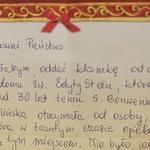 owni Państwo
oddać klamkę od d
domu Św. Edyty Stein, któr
d 30 lat temu S. Benwenu
lińska otrzymała od osoby,
óra w tamtym czasie opie
tym miejscem. Nie było je